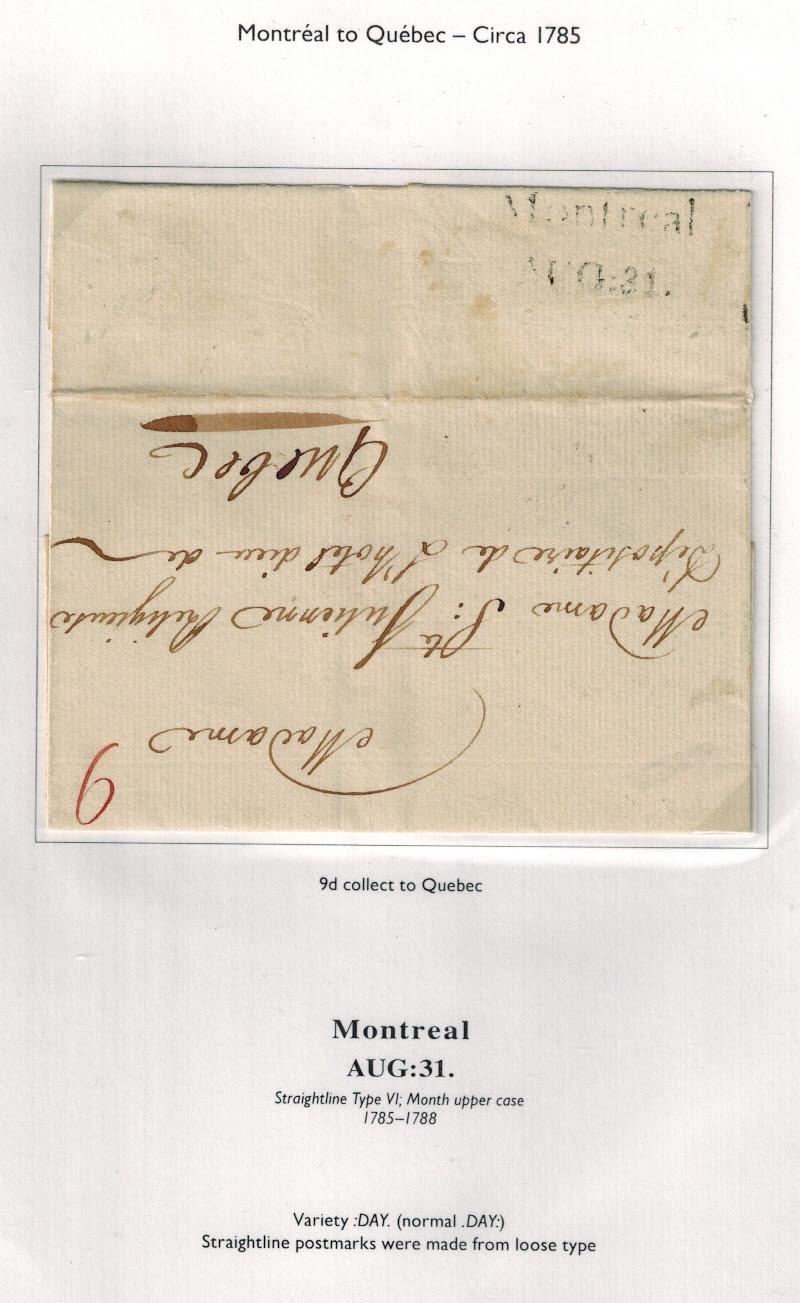 Montréal to Québec – Circa 1785
Montreal
AUG:31.
Madame
Madame Ste: Julienne Religieuse
Dépositaire de L'hotel dieu de
Quebec
9
9d collect to Quebec
Montreal
AUG:31.
Straightline Type VI; Month upper case
1785–1788
Variety :DAY. (normal .DAY:)
Straightline postmarks were made from loose type